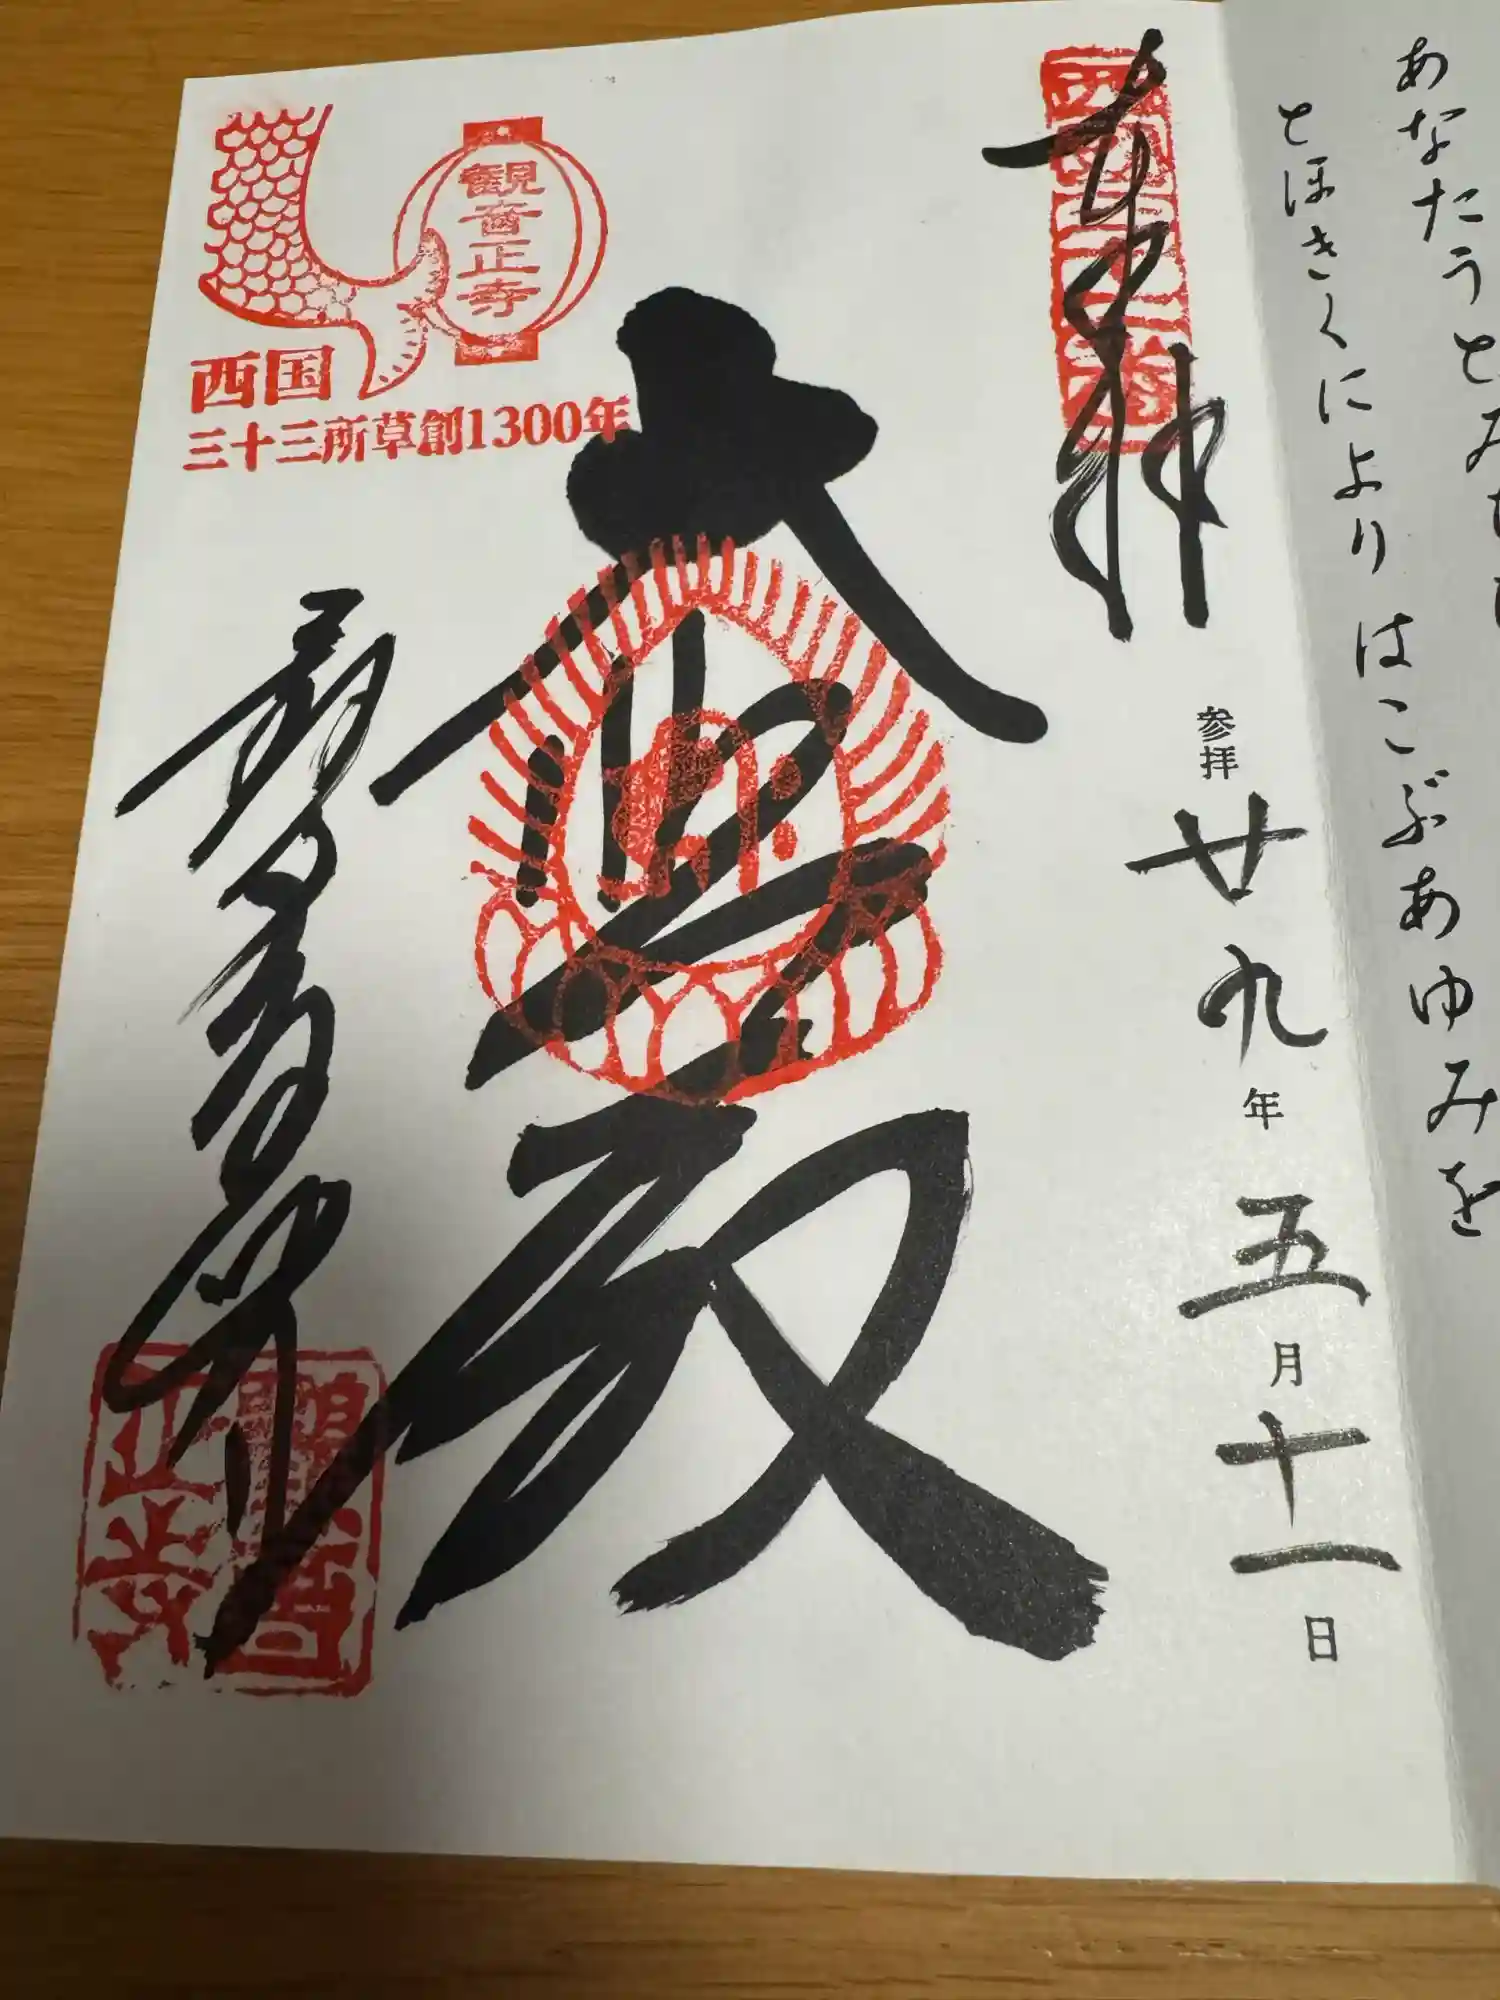 あなたうとみち
とほきくによりはこぶあゆみを
奉拝
西国三十二番
参拝廿九年五月十一日
観音正寺
西国
三十三所草創1300年
大悲殿
観音正寺
観音正寺